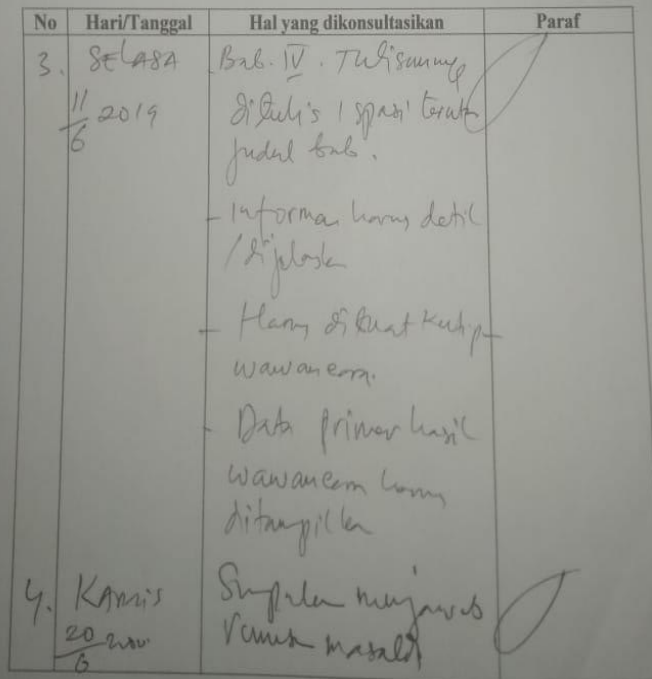 No Hari/Tanggal Hal yang dikonsultasikan Paraf
3. SELASA Bab. IV. Tulisannya
11/6 2019 ditulis 1 spasi
judul bab.
- Informan harus detil
/dijelaskan
- Harus dibuat kutip-
wawancara.
- Data primer hasil
wawancara harus
ditampilkan
4. KAMIS Simpulan menjawab
20/6 rumusan masalah